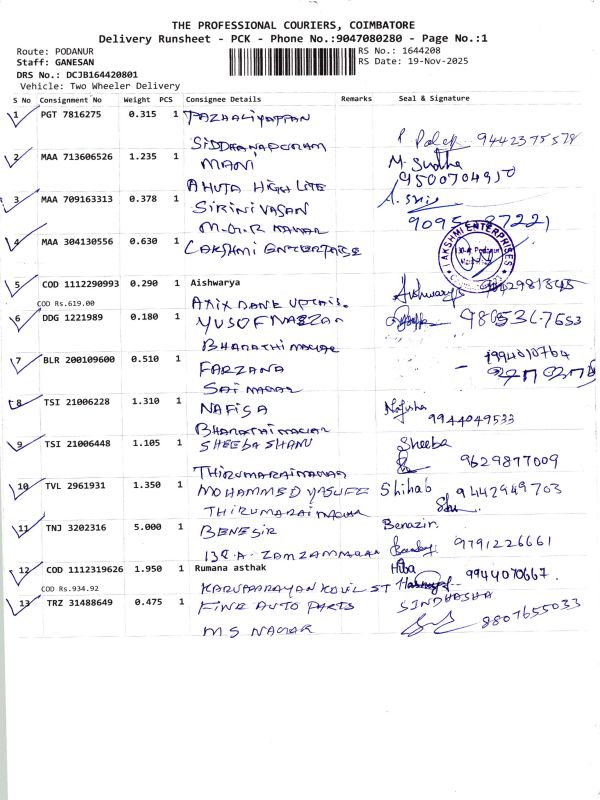 THE PROFESSIONAL COURIERS, COIMBATORE
Delivery Runsheet - PCK - Phone No.:9047080280 - Page No.:1
Route: PODANUR
RS No.: 1644208
Staff: GANESAN
RS Date: 19-Nov-2025
DRS No.: DCJB164420801
Vehicle: Two Wheeler Delivery
S No Consignment No Weight PCS Consignee Details Remarks Seal & Signature
1 PGT 7816275 0.315 1
SIDDHANAPURAM
9442375579
2 MAA 713606526 1.235 1 MANI M. Sudha
9500704910
AHUTA HIGH LITE
3 MAA 709163313 0.378 1 SIRINIVASAN
M.G.R NAGAR
4 MAA 304130556 0.630 1 LAKSHMI ENTERPRISE
LAKSHMI ENTERPRISES
5 COD 1112290993 0.290 1 Aishwarya Aishwarya
COD Rs.619.00
AXIX BANK UPTAIS.
6 DDG 1221989 0.180 1
BHARATHI NAGAR
7 BLR 200109600 0.510 1 FARZANA
1994010764
SAI NAGAR
8 TSI 21006228 1.310 1 NAFISA Nafisha
9944049533
BHARATHI NAGAR
9 TSI 21006448 1.105 1 SHEEBA SHANU Sheeba
9629877009
THIRUMARAI NAGAR
10 TVL 2961931 1.350 1 MOHAMMED YASUFF Shihab 9442949703
THIRUMARAI NAGAR
11 TNJ 3202316 5.000 1 BENESIR Benazir.
13C A. ZAMZAM NAGAR 9791226661
12 COD 1112319626 1.950 1 Rumana asthak Hiba
9944070667.
COD Rs.934.92
KARUPPARAYAN KOVIL ST
13 TRZ 31488649 0.475 1 FINE AUTO PARTS SINDHASHA
8807655033
M S NAGAR